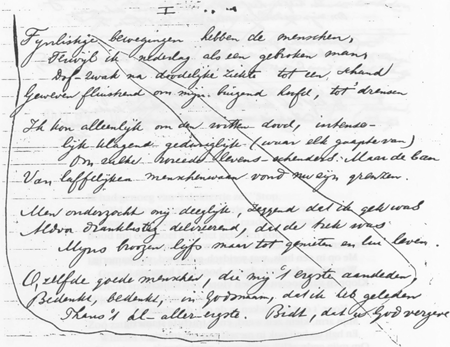 I
bewegingen hebben de menschen,
Terwijl ik nederlag als een gebroken man,
Dof-zwak na doodelijke ziekte tot een schand
Geweven fluistrend om mijn buigend hoofd, tot
Ik kon alleenlijk om den dood, intense-
lijk klagend geduriglijk (waar elk gaapte van)
Om zulke levens-schenders. Maar de ban
Van laffelijken menschenwaan vond nu zijn grenzen.
Men onderzocht mij deeglijk, zeggend dat ik gek was
Aldra dranklustig delireerend, dat de trek was
Mijns broozen lijfs maar tot genieten en lui leven.
O, zelfde goede menschen, die mij 't ergste aandeden,
Bedenkt, bedenkt, in Godsnaam, dat ik heb geleden
Thans 't al-aller-ergste. Bidt, dat U God vergeve